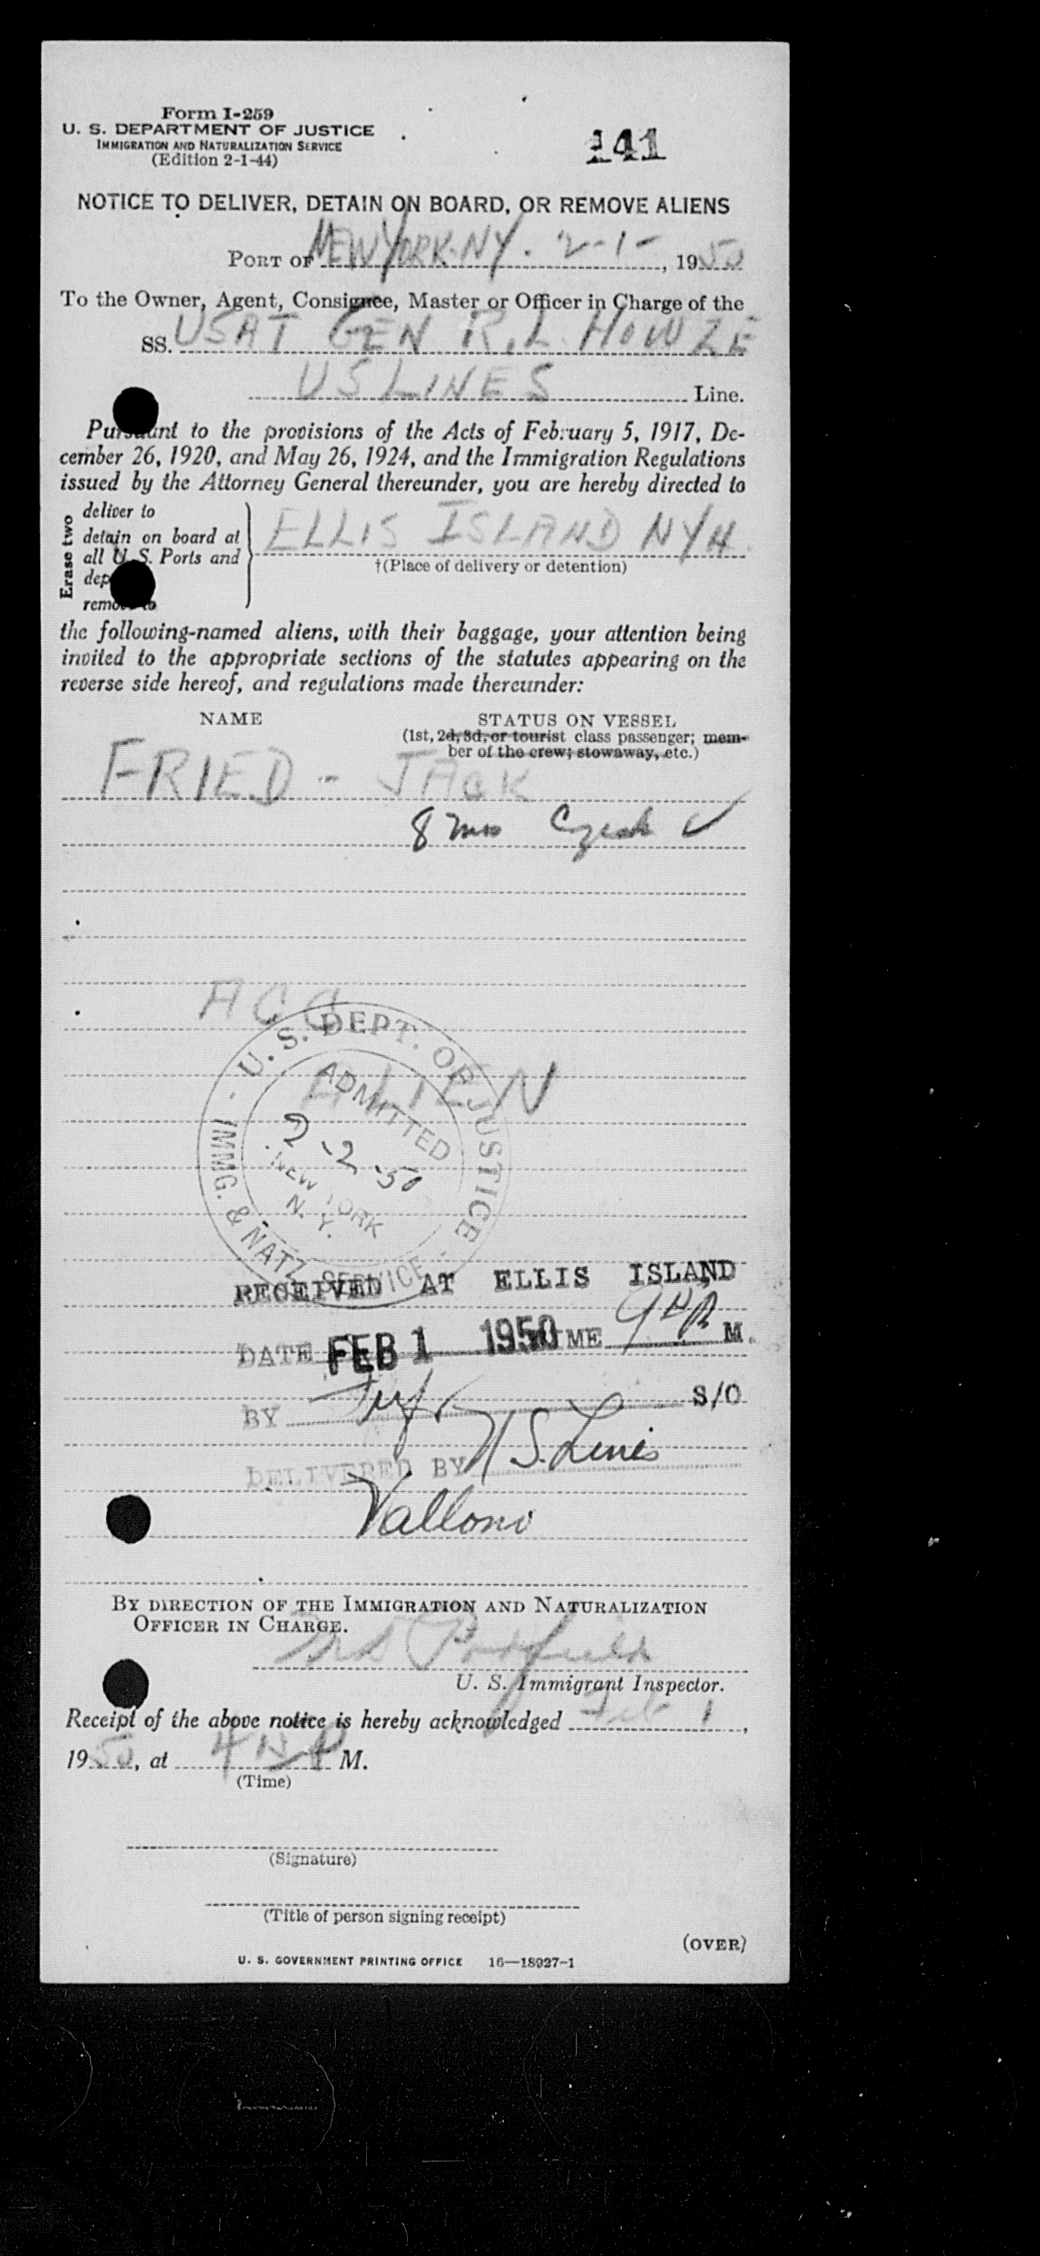 Form I-259
U. S. DEPARTMENT OF JUSTICE
IMMIGRATION AND NATURALIZATION SERVICE
(Edition 2-1-44)
141
NOTICE TO DELIVER, DETAIN ON BOARD, OR REMOVE ALIENS
PORT OF NEW YORK-NY. 2-1-, 1950
To the Owner, Agent, Consignee, Master or Officer in Charge of the
SS. USAT GEN R.L. HOWZE
US LINES Line.
Pursuant to the provisions of the Acts of February 5, 1917, De-
cember 26, 1920, and May 26, 1924, and the Immigration Regulations
issued by the Attorney General thereunder, you are hereby directed to
Erase two
deliver to
detain on board at
all U. S. Ports and
dep
remove to
ELLIS ISLAND NYH.
†(Place of delivery or detention)
the following-named aliens, with their baggage, your attention being
invited to the appropriate sections of the statutes appearing on the
reverse side hereof, and regulations made thereunder:
NAME
STATUS ON VESSEL
(1st, 2d, 3d, or tourist class passenger; mem-
ber of the crew; stowaway, etc.)
FRIED - JACK
8 mos Czech ✓
ACC
ALIEN
U. S. DEPT. OF JUSTICE
IMMG. & NATZ. SERVICE
ADMITTED
2-2-50
NEW YORK
N. Y.
RECEIVED AT ELLIS ISLAND
DATE FEB 1 1950 TIME M.
BY S/O
DELIVERED BY U.S. Lines
Vallono
BY DIRECTION OF THE IMMIGRATION AND NATURALIZATION
OFFICER IN CHARGE.
U. S. Immigrant Inspector.
Receipt of the above notice is hereby acknowledged Feb 1,
1950, at 4 15 P M.
(Time)
(Signature)
(Title of person signing receipt)
(OVER)
U. S. GOVERNMENT PRINTING OFFICE 16—18927-1